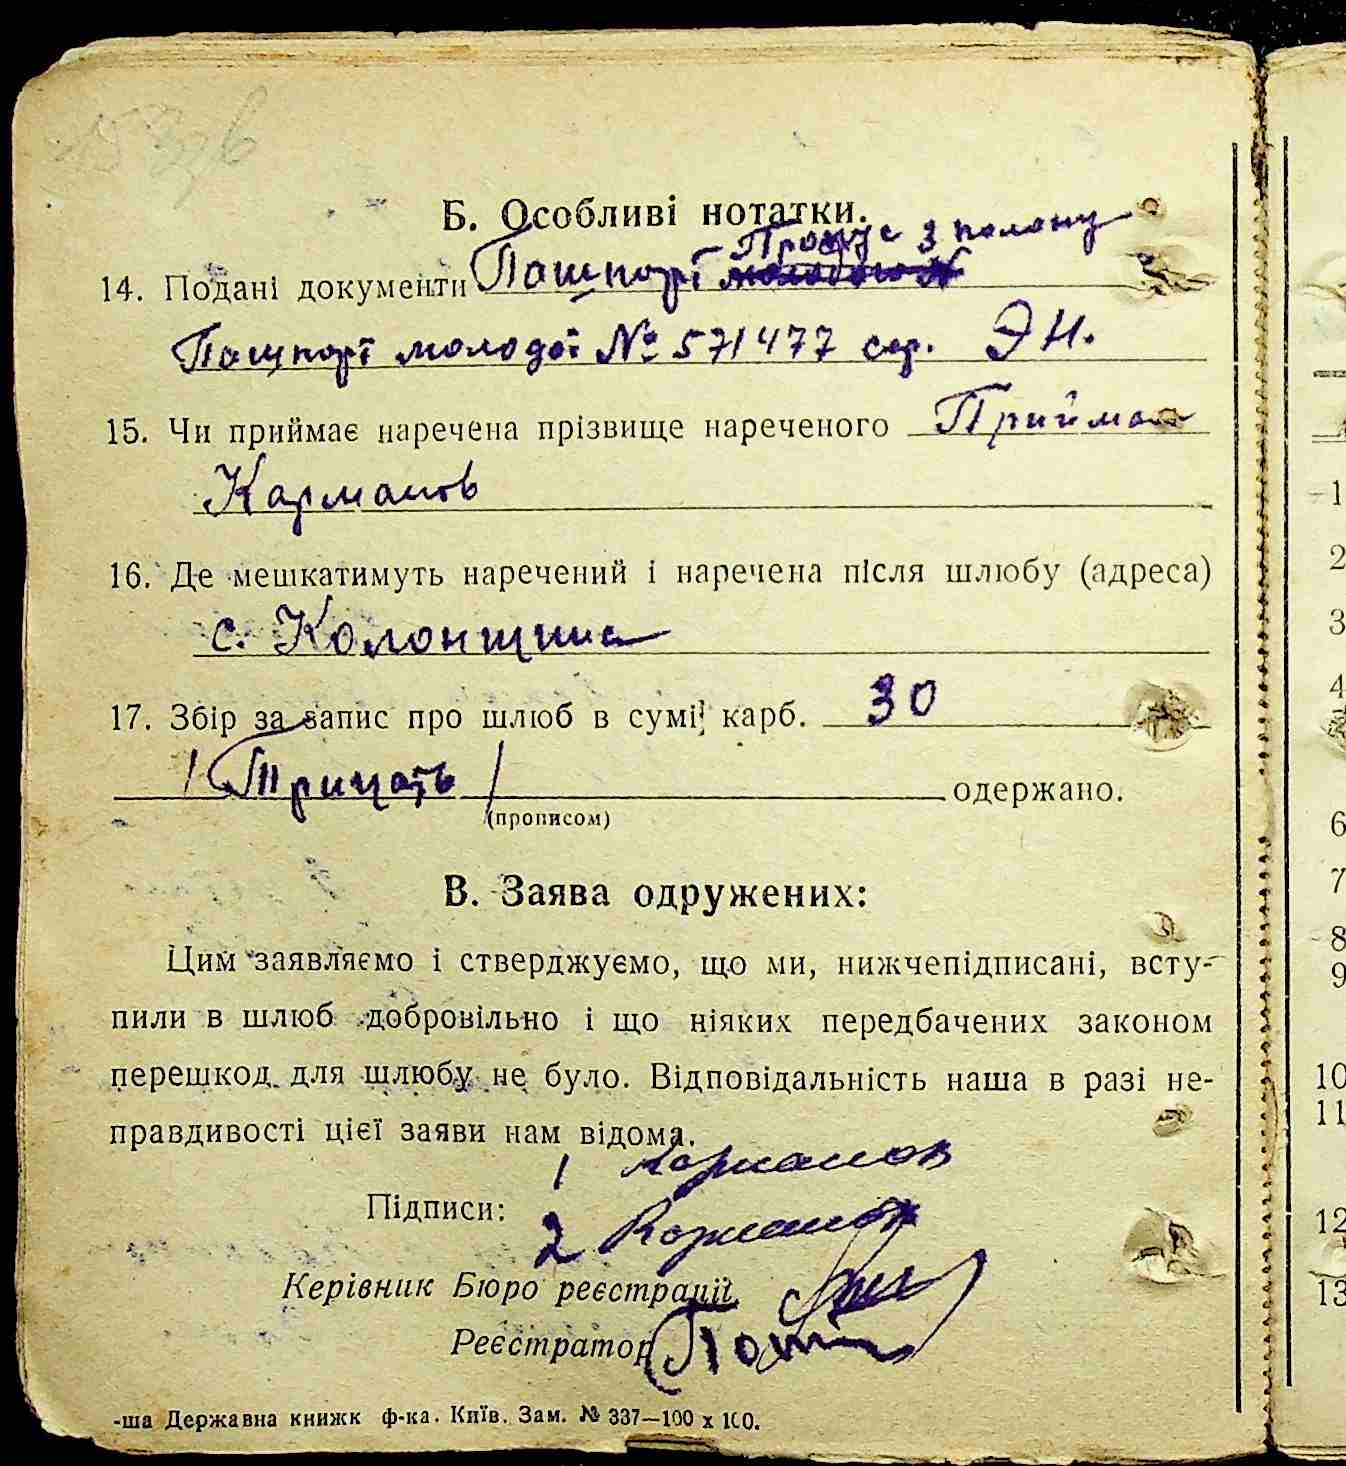 Б. Особливі нотатки.
з полону
14. Подані документи Пашпорт
Пашпорт молодої № 571477 сер. ЭН.
15. Чи приймає наречена прізвище нареченого Приймає
Карманов
16. Де мешкатимуть наречений і наречена після шлюбу (адреса)
с. Колонщина
17. Збір за запис про шлюб в сумі карб. 30
/Трицать/ одержано.
(прописом)
В. Заява одружених:
Цим заявляємо і стверджуємо, що ми, нижчепідписані, всту-
пили в шлюб добровільно і що ніяких передбачених законом
перешкод для шлюбу не було. Відповідальність наша в разі не-
правдивості цієї заяви нам відома.
1 Карманов
Підписи:
2 Карманов
Керівник Бюро реєстрації
Реєстратор
-ша Державна книжк ф-ка. Київ. Зам. № 337—100 х 100.
1
2
3
4
6
7
8
9
10
11
12
13